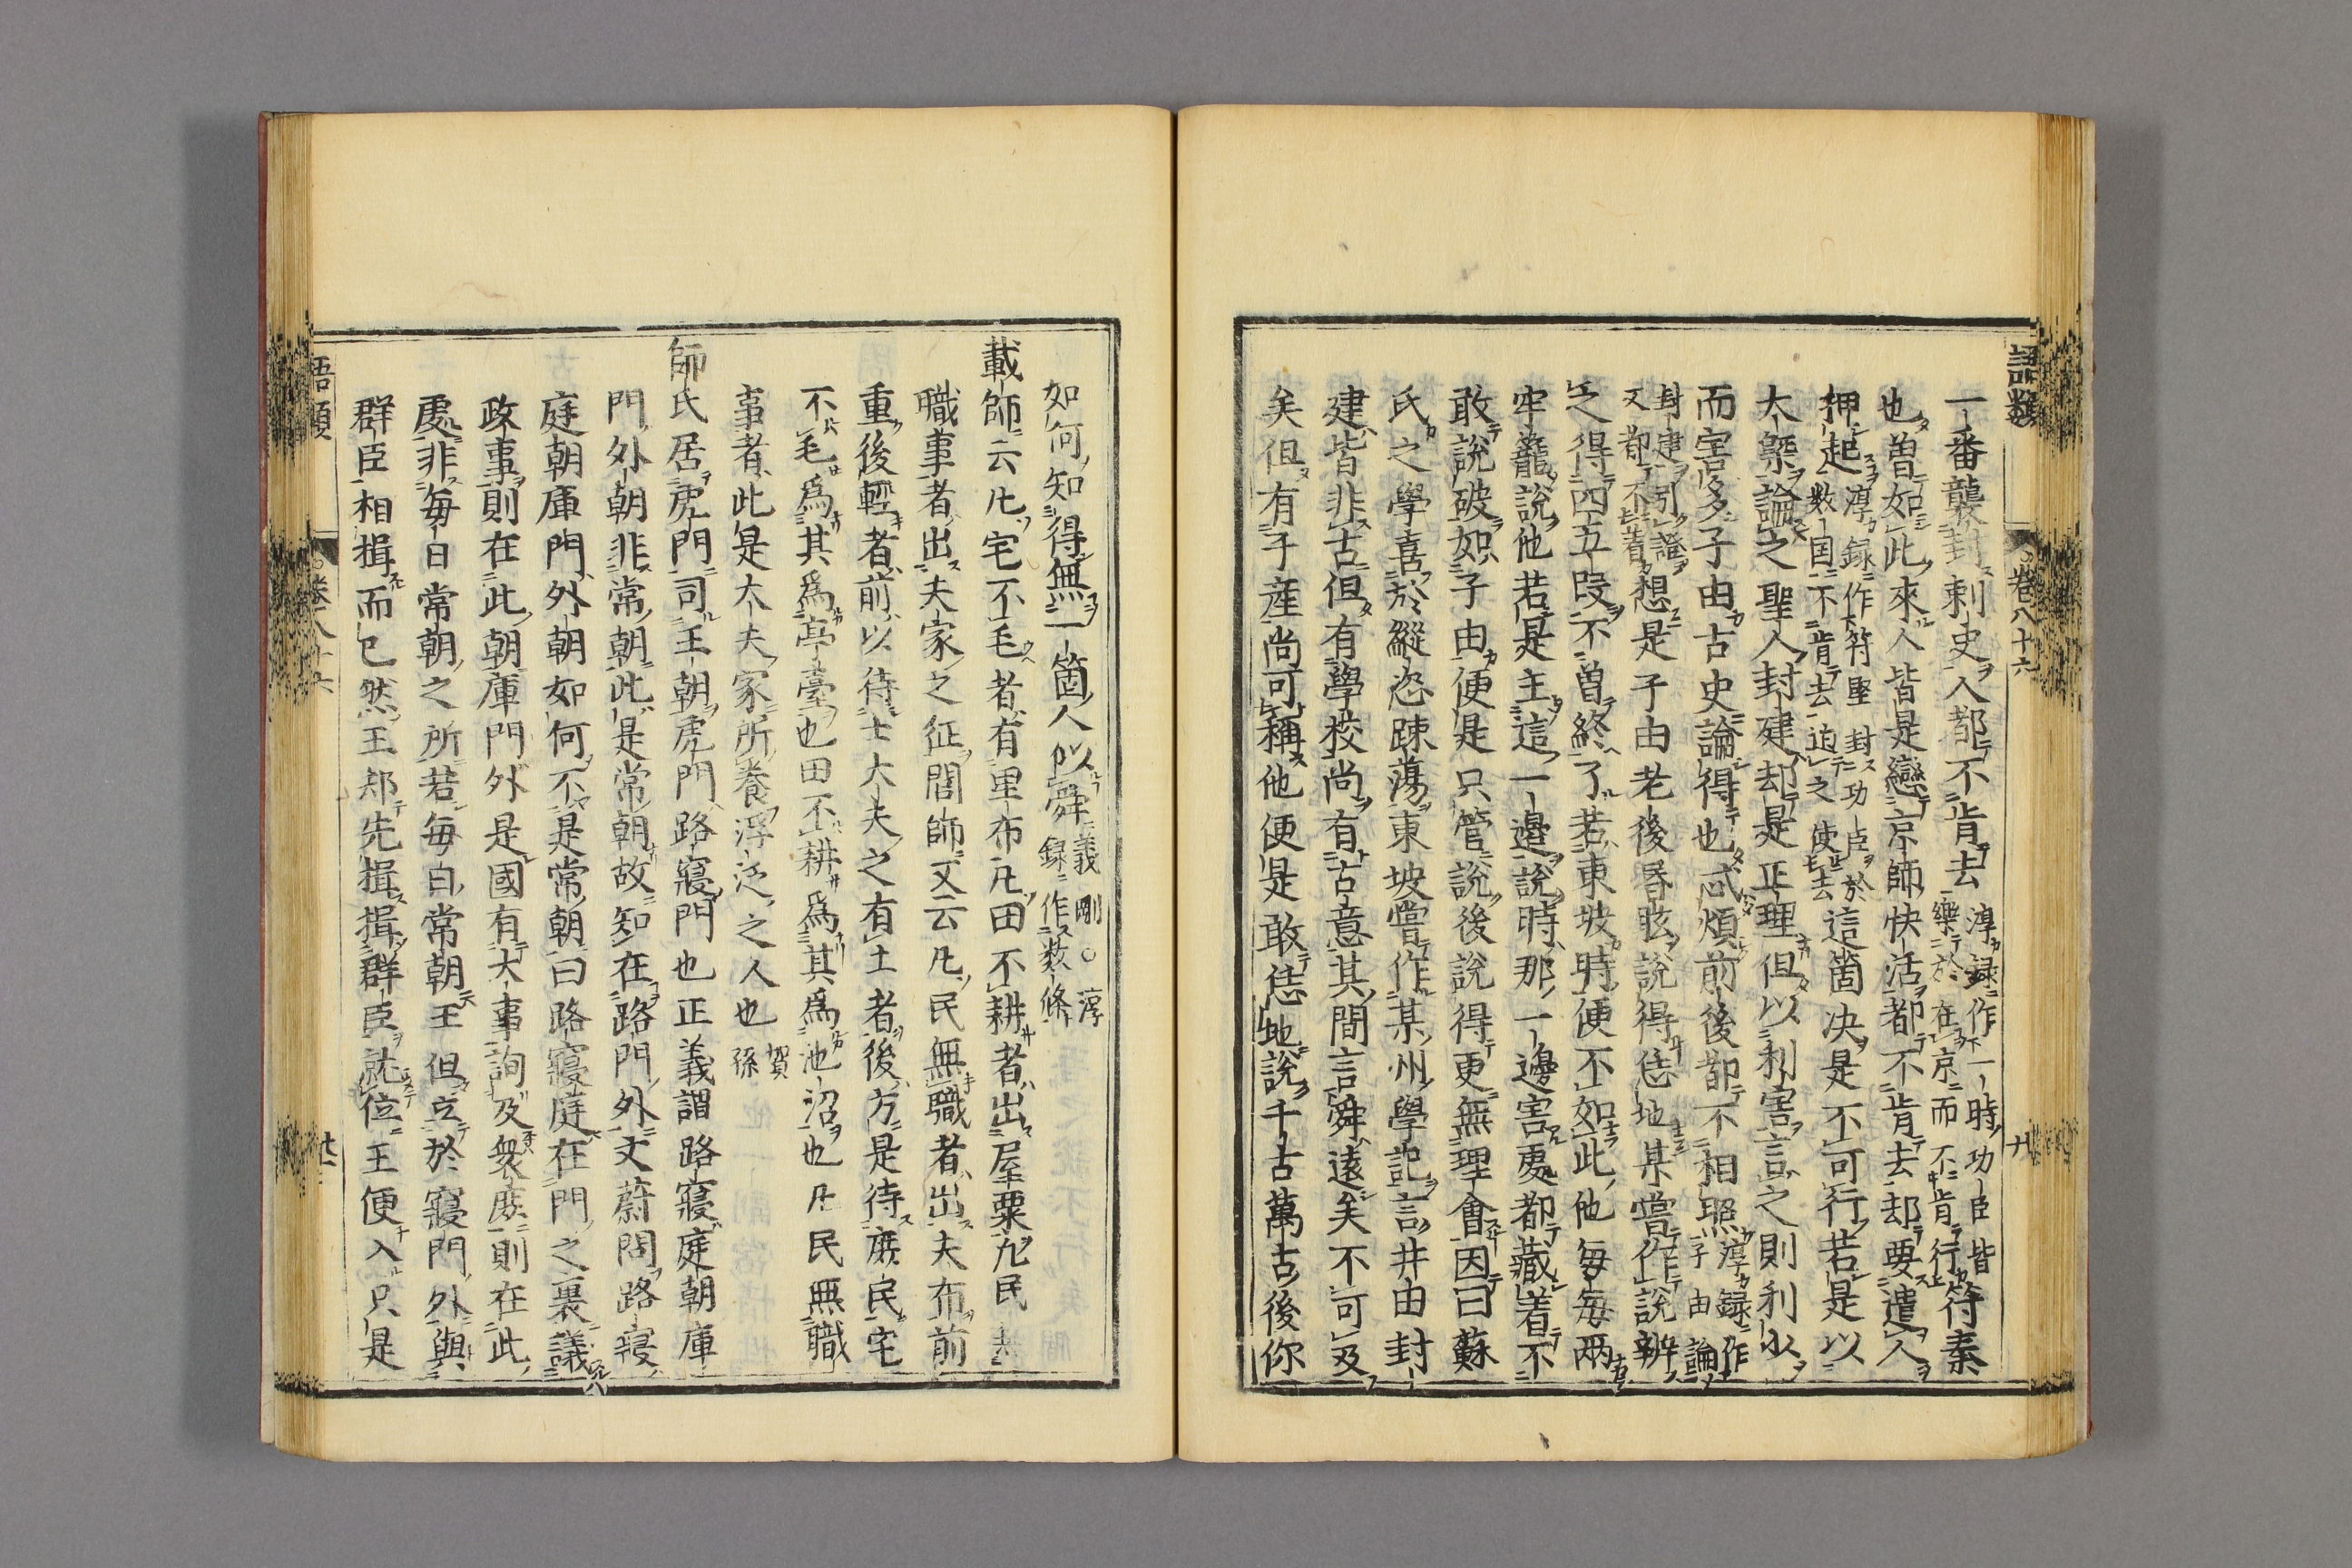 語類 卷八十六
一番襲封刺史人都不肯去淳録作一時功臣皆樂於在京而不肯行符秦
也曽如此來人皆是戀京師快活都不肯去却要遣人
押起淳録作符堅封功臣於数国不肯去迫之使去這箇决是不可行若是以
大槩論之聖人封建却是正理但以利害言之則利少
而害多子由古史論得也忒煩前後都不相照淳録作子由論
封建引證又都不着想是子由老後昏眩說得恁地某嘗作說辨
之得四五段不曽終了若東坡時便不如此他每每兩
牢籠說他若是主這一邊說時那一邊害處都藏着不
敢說破如子由便是只管說後說得更無理會因曰蘇
氏之學喜於縱恣踈蕩東坡嘗作某州學記言井由封
建皆非古但有學校尚有古意其間言舜遠矣不可及
矣但有子產尚可稱他便是敢恁地說千古萬古後你
如何知得無一箇人似舜義剛○淳録作数條
載師云凡宅不毛者有里布凡田不耕者出屋粟凡民
職事者出夫家之征閭師又云凡民無職者出夫布前
重後輕者前以待士大夫之有土者後方是待庶民宅
不毛爲其爲亭臺也田不耕爲其爲池沼也凡民無職
事者此是大夫家所養浮泛之人也賀孫
師氏居虎門司王朝虎門路寢門也正義謂路寢庭朝庫
門外朝非常朝此是常朝故知在路門外文蔚問路寢
庭朝庫門外朝如何不是常朝曰路寢庭在門之裏議
政事則在此朝庫門外是國有大事詢及衆庶則在此
處非每日常朝之所若每日常朝王但立於寢門外與
群臣相揖而已然王却先揖揖群臣就位王便入只是
語類 卷八十六